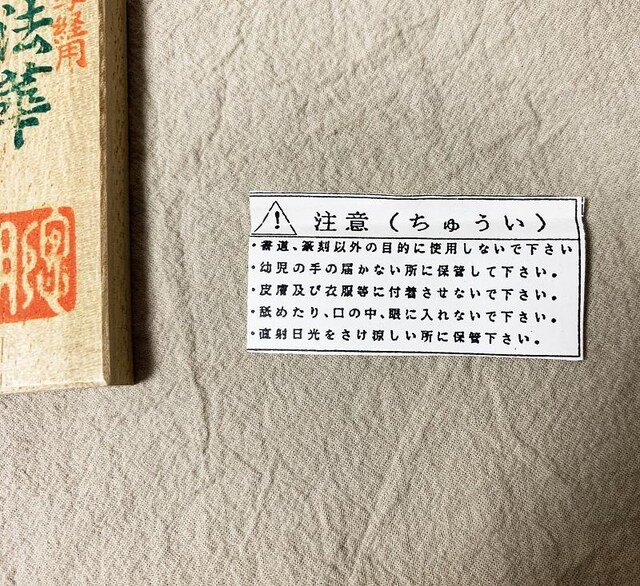 写経用
法華
注意(ちゅうい)
・書道、篆刻以外の目的に使用しないで下さい
・幼児の手の届かない所に保管して下さい。
・皮膚及び衣服等に付着させないで下さい。
・舐めたり、口の中、眼に入れないで下さい。
・直射日光をさけ涼しい所に保管下さい。